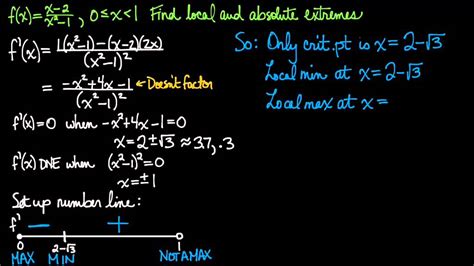 f(x)=\frac{x-2}{x^2-1}, 0≤x<1 Find local and absolute extremes
f'(x)=\frac{1(x^2-1)-(x-2)(2x)}{(x^2-1)^2}
=\frac{-x^2+4x-1}{(x^2-1)^2} ←Doesn't factor
f'(x)=0 when -x^2+4x-1=0
x=2±√3≈3.7, .3
f'(x) DNE when (x^2-1)^2=0
x=±1
Set up number line:
f' − +
0 2-√3 1
MAX MIN NOT A MAX
So: Only crit. pt is x=2-√3
Local min at x=2-√3
Local max at x=